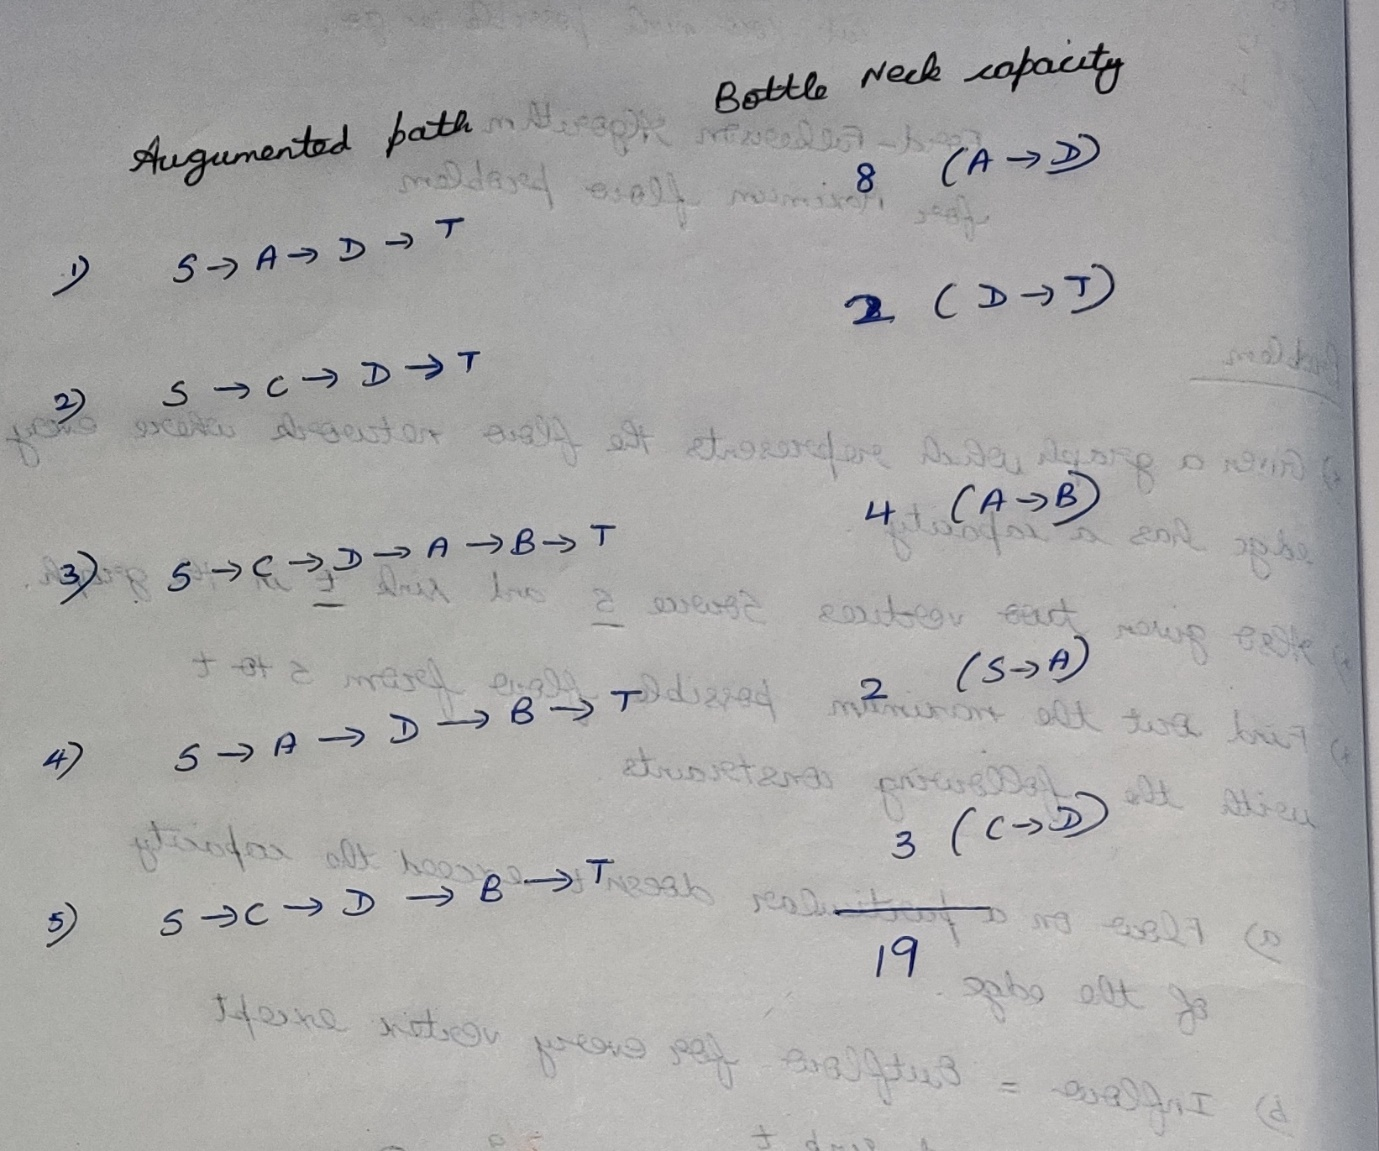 Augumented path Bottle Neck capacity
1) S → A → D → T 8 (A → D)
2) S → C → D → T 2 (D → T)
3) S → C → D → A → B → T 4 (A → B)
4) S → A → D → B → T 2 (S → A)
5) S → C → D → B → T 3 (C → D)
19